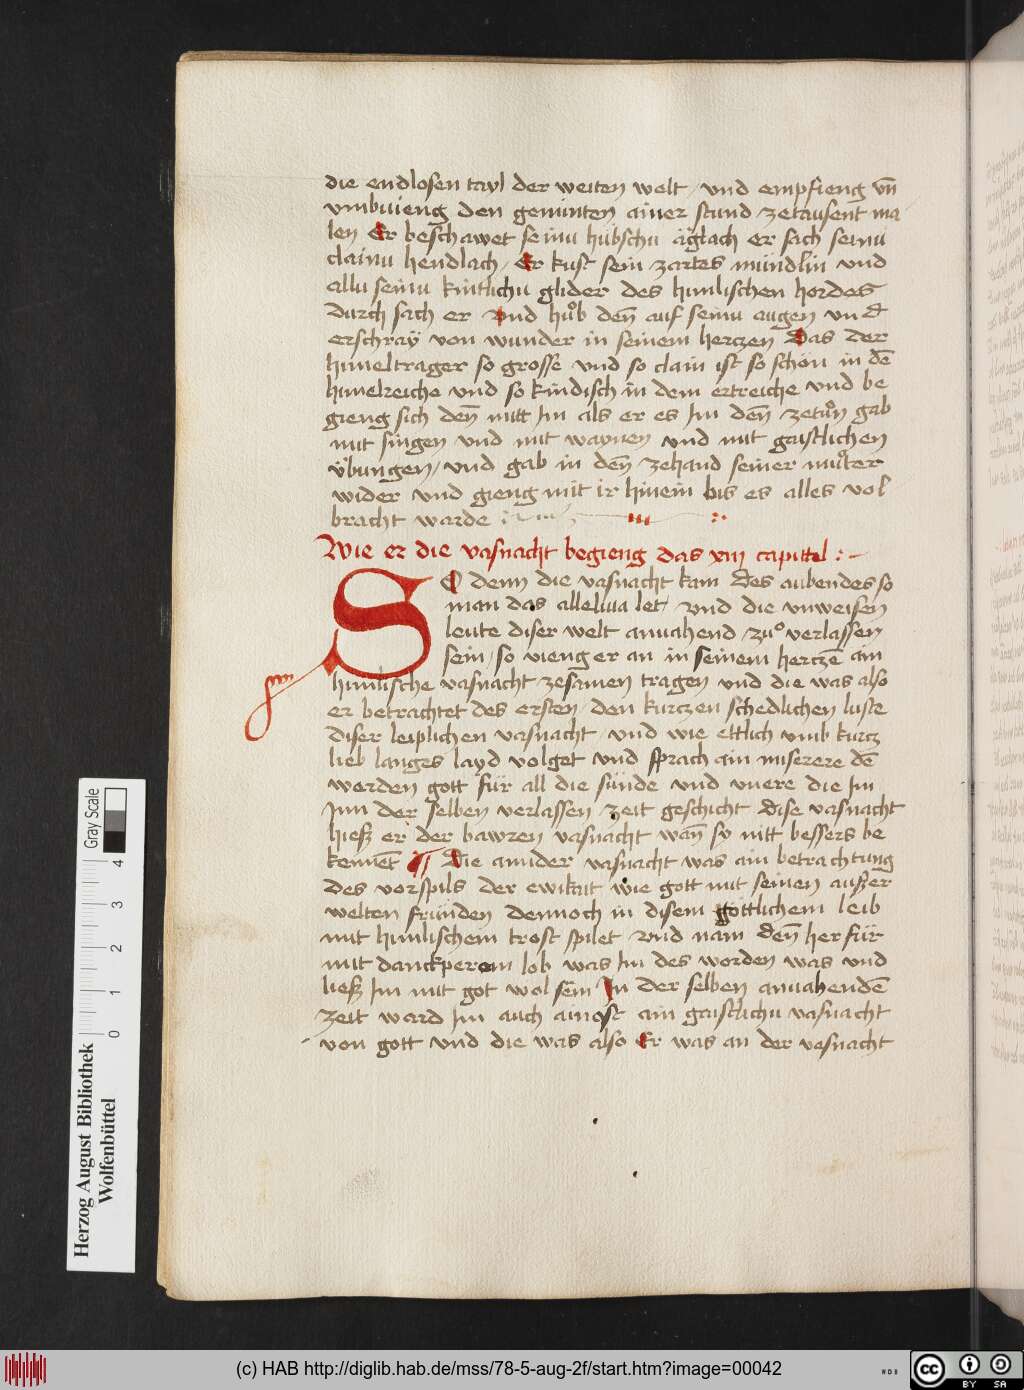 die endlosen tayl der weiten welt / und empfieng vñ
vmbuieng den geminten ainer stund / zetausent ma
len Er beschawet seinu hùbschu äglach er sach seinu
clainu hendlach / Er kust sein zartes mùndlin und
allu seinu kintlichu glider des himlischen hordes
durch sach er und hůb deñ auf seinu augen und
erschray von wunder in seinem herczen Das der
himeltrager so grosse und so clain ist so schön in dē
himelreiche und so kindisch in dem ertreiche und be
gieng sich deñ mitt Im als er es Im deñ zetůn gab
mit singen und mit waynen und mit gaistlichen
v̈bungen / und gab in deñ zehand seiner můter
wider und gieng mit ir hinein bis es alles vol
bracht warde
Wie er die vasnacht begieng das xiii capittel :~
SO denn die vasnacht kam des aubendes so
man das alleluia let / und die unweisen
leute diser welt anuahend / zů verlassen
sein / so vieng er an in seinem herczē ain
himlische vasnacht zesamen tragen und die was also
er betrachtet des ersten / den kurczen schedlichen luste
diser leiplichen vasnacht / und wie ettlich umb kurcz
lieb langes layd volget und sprach ain miserere dē
werden gott fùr all die sùnde und unere die Im
Inn der selben verlassen / zeit geschicht dise vasnacht
hiesz er der bawren vasnacht wañ sy nitt bessers be
kennēt ¶ Die annder vasnacht was ain betrachtung
des vorspils der ewikait wie gott mit seinen auszer
welten frùnden dennoch in disem göttlichem leib
mit himlischem trost spilet und nam deñ herfùr
mit danckperem lob was Im des worden was und
liesz Im mit got wol sein In der selben anuahendē
zeit ward Im auch ainost ain gaistlichu vasnacht
von gott und die was also Er was an der vasnacht
Herzog August Bibliothek
Wolfenbüttel
0 1 2 3 4
Gray Scale
(c) HAB http://diglib.hab.de/mss/78-5-aug-2f/start.htm?image=00042
WDB
cc BY SA